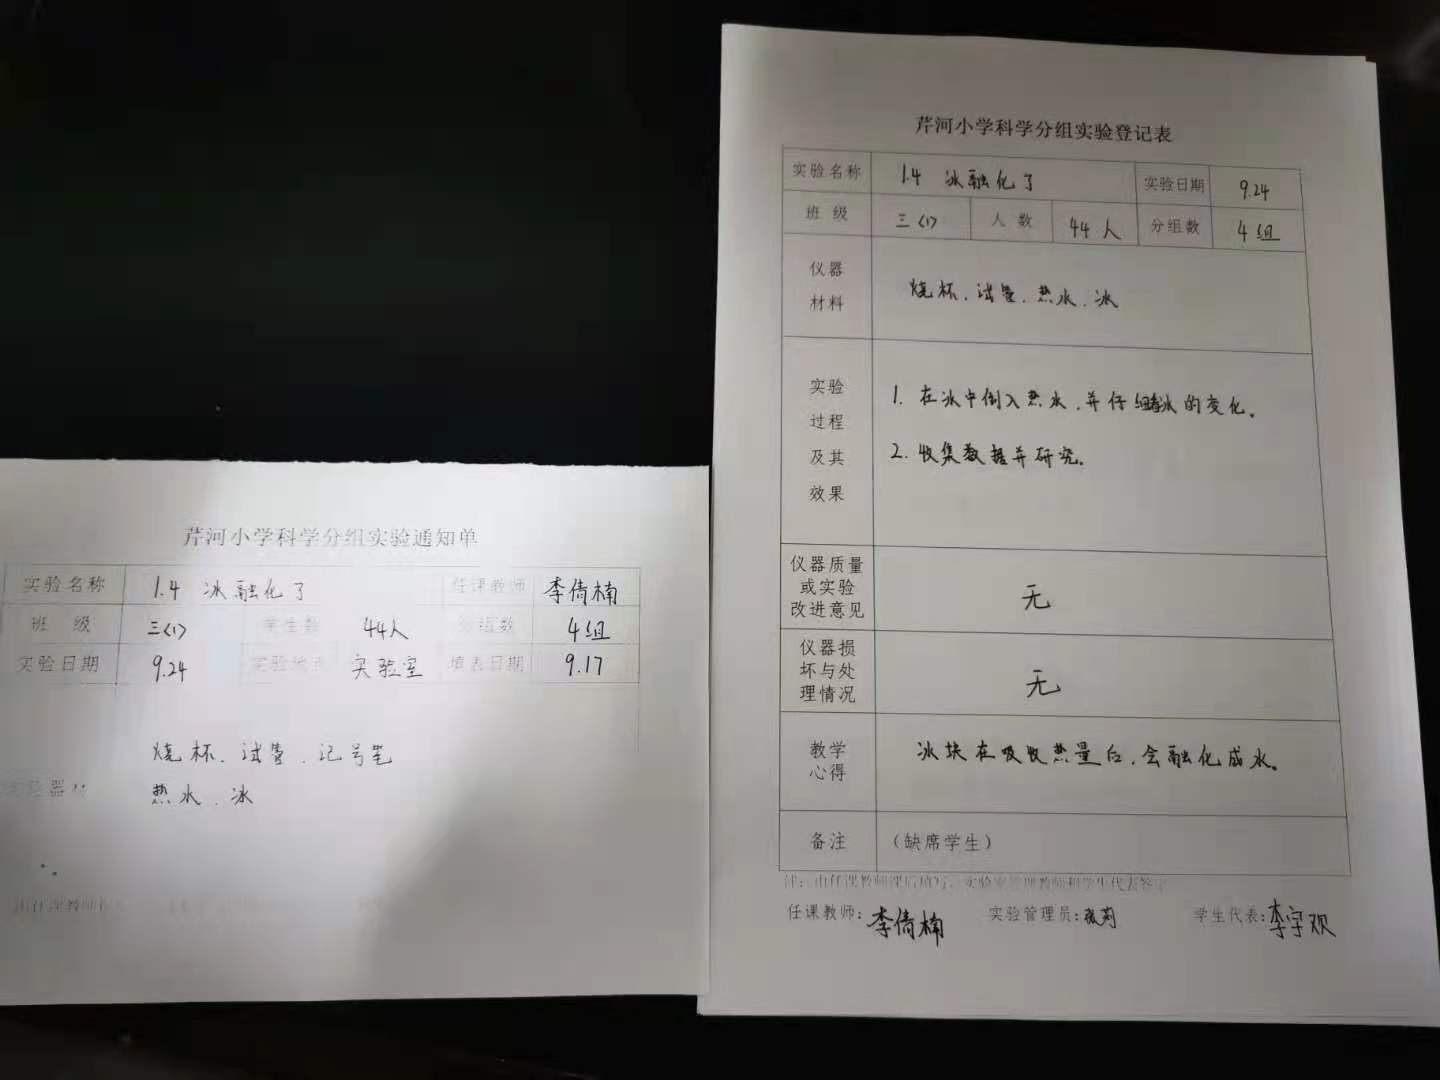 芹河小学科学分组实验通知单
实验名称 1.4 冰融化了 任课教师 李倩楠
班 级 三<1> 学生数 44人 分组数 4组
实验日期 9.24 实验地点 实验室 填表日期 9.17
烧杯、试管、记号笔
热水、冰
芹河小学科学分组实验登记表
实验名称 1.4 冰融化了 实验日期 9.24
班 级 三<1> 人 数 44人 分组数 4组
仪器
材料
烧杯、试管、热水、冰
实验
过程
及其
效果
1. 在冰中倒入热水,并仔细观察冰的变化。
2. 收集数据并研究。
仪器质量
或实验
改进意见
无
仪器损
坏与处
理情况
无
教学
心得
冰块在吸收热量后,会融化成水。
备注 (缺席学生)
注:由任课教师课后填写,实验室管理教师和学生代表签字
任课教师:李倩楠 实验管理员:张莉 学生代表:李宇欢